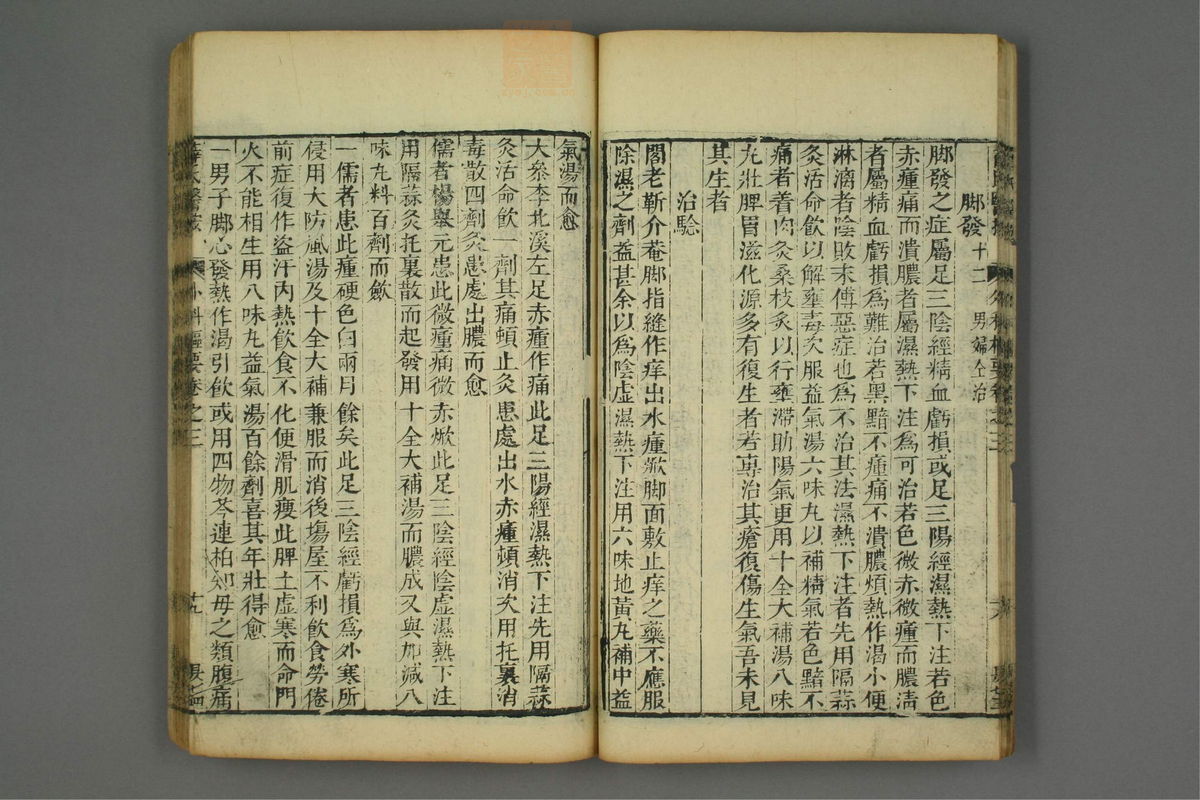 脚發十二 男婦仝治
脚發之症屬足三陰經精血虧損或足三陽經濕熱下注若色
赤瘇痛而潰膿者屬濕熱下注為可治若色微赤微瘇而膿清
者屬精血虧損為難治若黑黯不瘇痛不潰膿煩熱作渴小便
淋漓者陰敗末傳惡症也為不治其法濕熱下注者先用隔蒜
灸活命飲以解壅毒次服益氣湯六味丸以補精氣若色黯不
痛者着肉灸桑枝灸以行壅滯助陽氣更用十全大補湯八味
丸壯脾胃滋化源多有復生者若專治其瘡復傷生氣吾未見
其生者
治驗
閣老靳介菴脚指縫作痒出水瘇焮脚面敷止痒之藥不應服
除濕之劑益甚余以為陰虛濕熱下注用六味地黃丸補中益
氣湯而愈
大叅李北溪左足赤瘇作痛此足三陽經濕熱下注先用隔蒜
灸活命飲一劑其痛頓止灸患處出水赤瘇頓消次用托裏消
毒散四劑灸患處出膿而愈
儒者楊舉元患此微瘇痛微赤焮此足三陰經陰虛濕熱下注
用隔蒜灸托裏散而起發用十全大補湯而膿成又與加減八
味丸料百劑而斂
一儒者患此瘇硬色白兩月餘矣此足三陰經虧損為外寒所
侵用大防風湯及十全大補兼服而消後塲屋不利飲食勞倦
前症復作盜汗內熱飲食不化便滑肌瘦此脾土虛寒而命門
火不能相生用八味丸益氣湯百餘劑喜其年壯得愈
一男子脚心發熱作渴引飲或用四物芩連柏知毋之類腹痛
薛氏醫案 外科樞要卷之三 十九